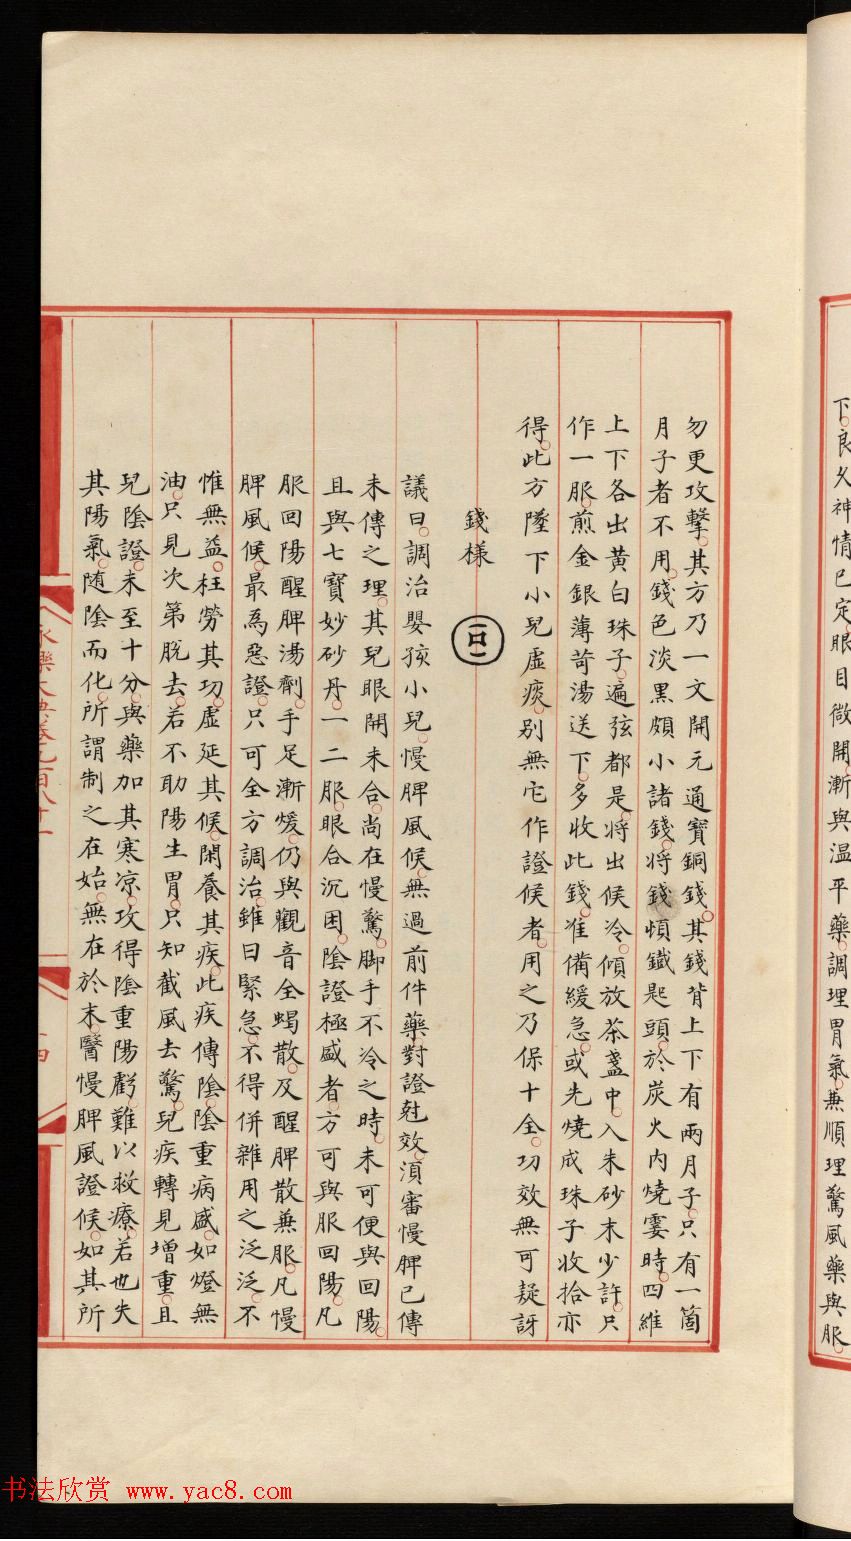 下。良久神情已定。眼目微開。漸與温平藥。調理胃氣。兼順理驚風藥與服。
勿更攻擊。其方乃一文開元通寶銅錢。其錢背上下有兩月子。只有一箇
月子者不用。錢色淡黑頗小諸錢。將錢頓鐵匙頭。於炭火内燒霎時。四維
上下各出黄白珠子。遍弦都是。將出候冷。傾放茶盞中。入朱砂末少許。只
作一服。煎金銀薄苛湯送下。多收此錢。准備緩急。或先燒成珠子收拾亦
得。此方墜下小兒虚痰。别無它作證候者。用之乃保十全。功效無可疑訝
錢樣
議曰。調治嬰孩小兒。慢脾風候。無過前件藥。對證尅效。湏審慢脾已傳
未傳之理。其兒眼開未合。尚在慢驚。脚手不冷之時。未可便與回陽。
且與七寶妙砂丹。一二服。眼合沉困。陰證極盛者。方可與服回陽。凡
服回陽醒脾湯劑。手足漸煖。仍與觀音全蝎散。及醒脾散兼服。凡慢
脾風候。最爲惡證。只可全方調治。雖曰緊急。不得併雜用之泛泛。不
惟無益。枉勞其功。虚延其候。閑養其疾。此疾傳陰。陰重病盛。如燈無
油。只見次第脱去。若不助陽生胃。只知截風去驚。兒疾轉見增重。且
兒陰證。未至十分。與藥加其寒凉。攻得陰重陽虧。難以救療。若也失
其陽氣。随陰而化。所謂制之在始。無在於末。醫慢脾風證候。如其所
永樂大典卷九百八十一
四
书法欣赏 www.yac8.com